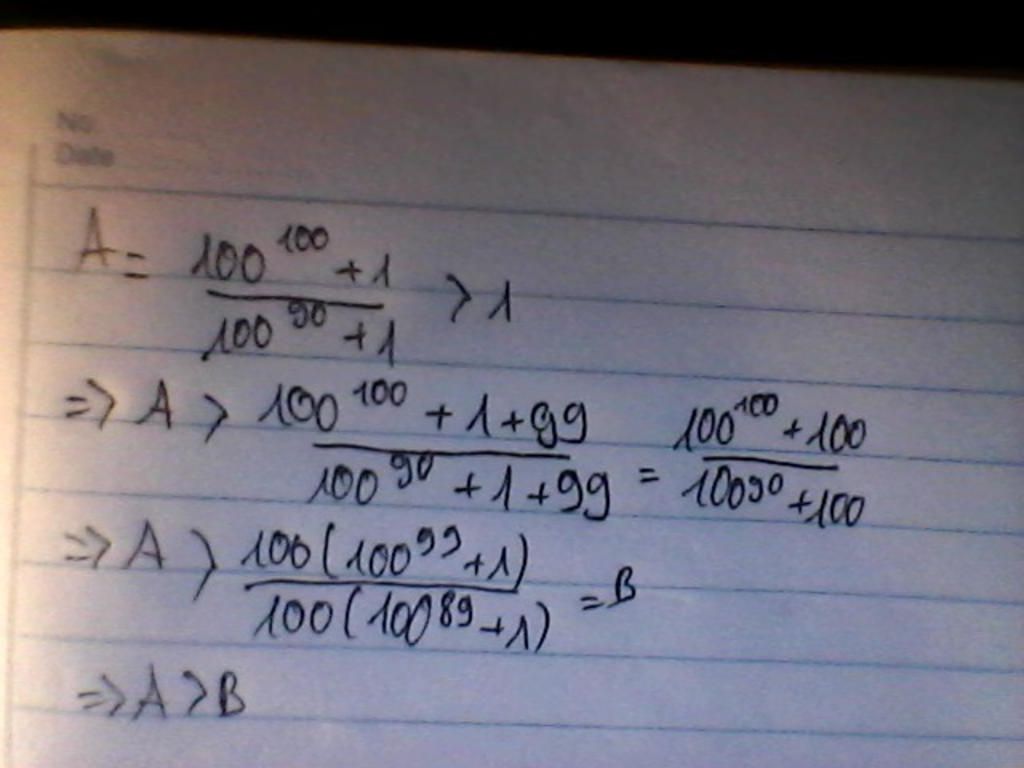 No.
Date
A = \frac{100^{100} + 1}{100^{90} + 1} > 1
=> A > \frac{100^{100} + 1 + 99}{100^{90} + 1 + 99} = \frac{100^{100} + 100}{100^{90} + 100}
=> A > \frac{100(100^{99} + 1)}{100(100^{89} + 1)} = B
=> A > B